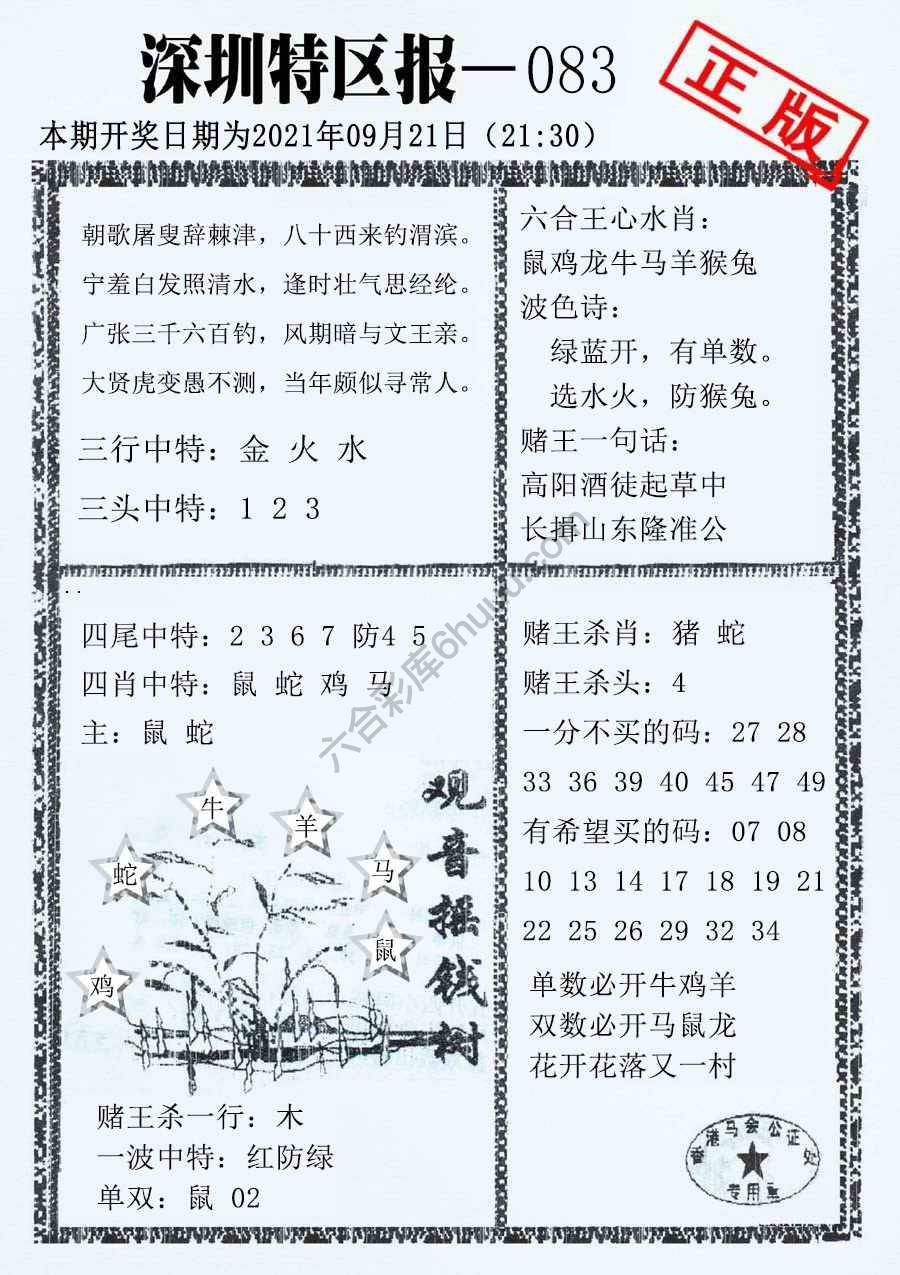 深圳特区报—083
正版
本期开奖日期为2021年09月21日（21:30）
朝歌屠叟辞棘津，八十西来钓渭滨。
宁羞白发照清水，逢时壮气思经纶。
广张三千六百钓，风期暗与文王亲。
大贤虎变愚不测，当年颇似寻常人。
三行中特：金 火 水
三头中特：1 2 3
六合王心水肖：
鼠鸡龙牛马羊猴兔
波色诗：
绿蓝开，有单数。
选水火，防猴兔。
赌王一句话：
高阳酒徒起草中
长揖山东隆准公
四尾中特：2 3 6 7 防4 5
四肖中特：鼠 蛇 鸡 马
主：鼠 蛇
牛
羊
蛇
马
鼠
鸡
观音摇钱树
赌王杀一行：木
一波中特：红防绿
单双：鼠 02
赌王杀肖：猪 蛇
赌王杀头：4
一分不买的码：27 28
33 36 39 40 45 47 49
有希望买的码：07 08
10 13 14 17 18 19 21
22 25 26 29 32 34
单数必开牛鸡羊
双数必开马鼠龙
花开花落又一村
香港马会公证处
专用章
六合彩库6huu.com